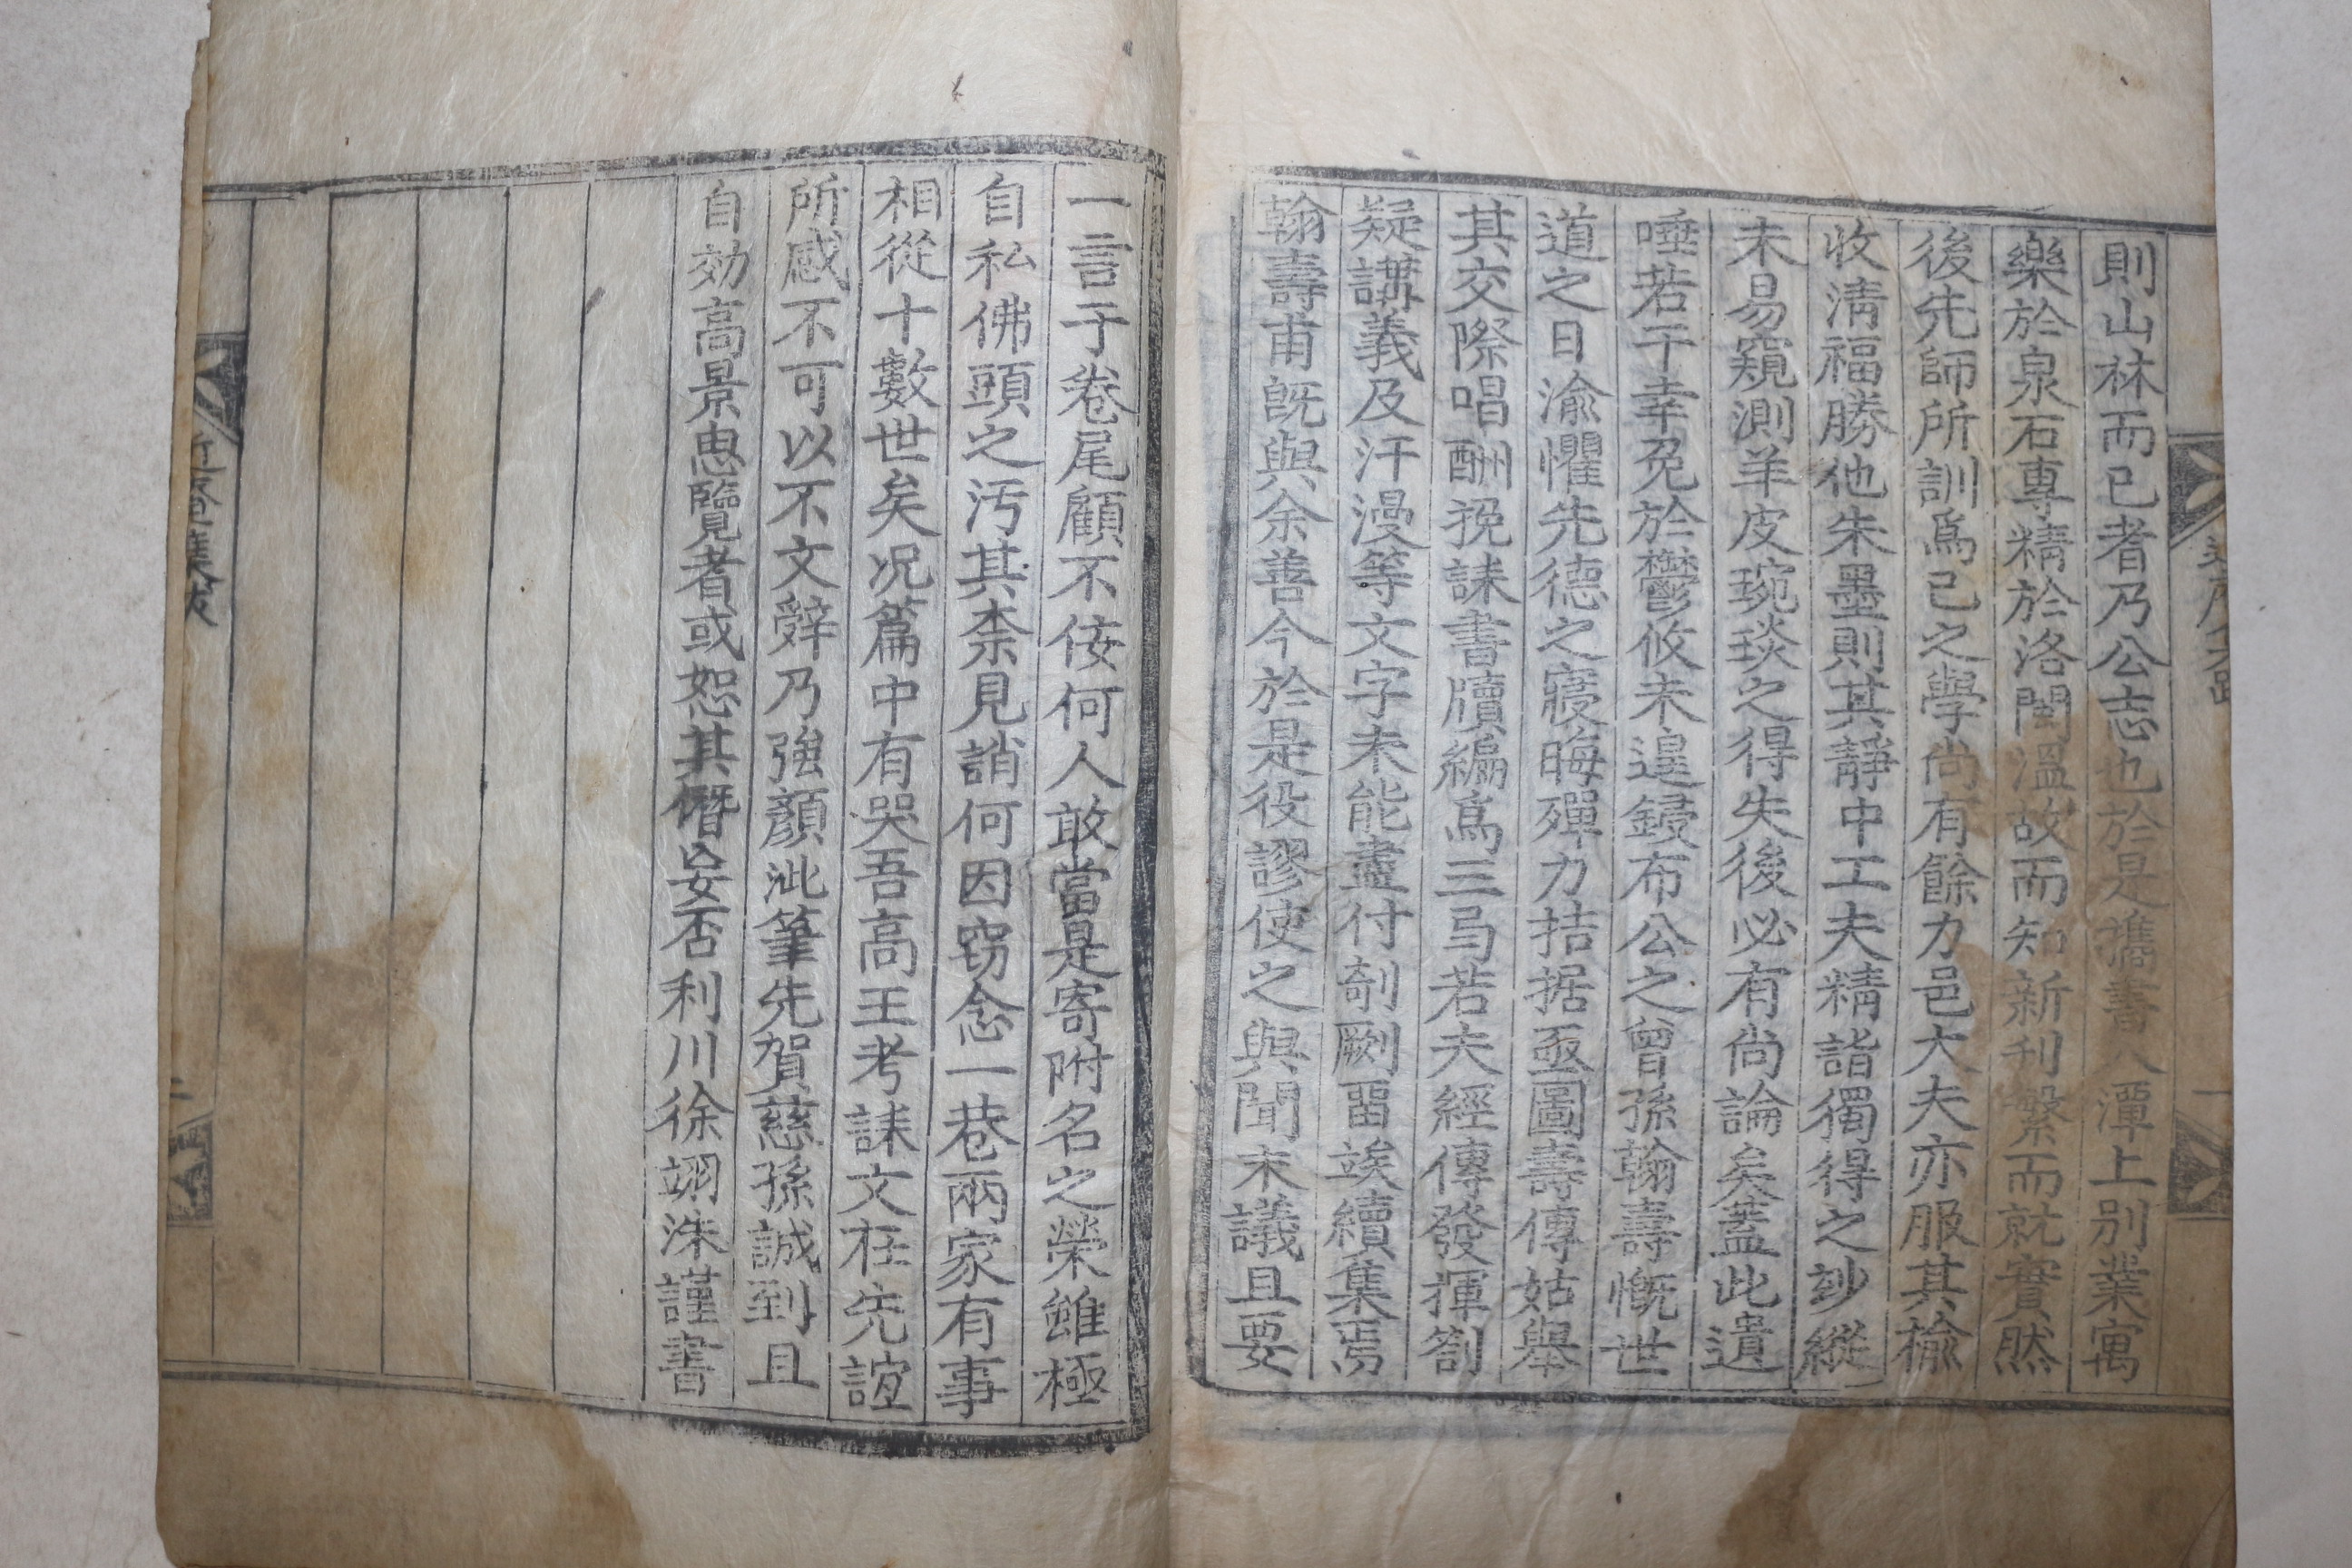 則山林而已者乃公志也於是携書八潭上別業寓
樂於泉石專精於洛閩溫故而知新刊繁而就實然
後先師所訓爲己之學尙有餘力邑大夫亦服其楡
收淸福勝他朱墨則其靜中工夫精詣獨得之玅縱
未易窺測羊皮琬琰之得失後必有尙論矣蓋此遺
唾若干幸免於鬱攸未遑鋟布公之曾孫翰壽慨世
道之日渝懼先德之寢晦殫力拮据亟圖壽傳姑擧
其交際唱酬挽誄書牘編爲三弓若夫經傳發揮箚
疑講義及汗漫等文字未能盡付剞劂畱竢續集焉
翰壽甫旣與余善今於是役謬使之與聞末議且要
一言于卷尾顧不佞何人敢當是寄附名之榮雖極
自私佛頭之汚其柰見誚何因竊念一巷兩家有事
相從十數世矣况篇中有哭吾高王考誄文在先誼
所感不可以不文辤乃強顔泚筆先賀慈孫誠到且
自効高景恖覽者或恕其僭妄否利川徐翊洙謹書